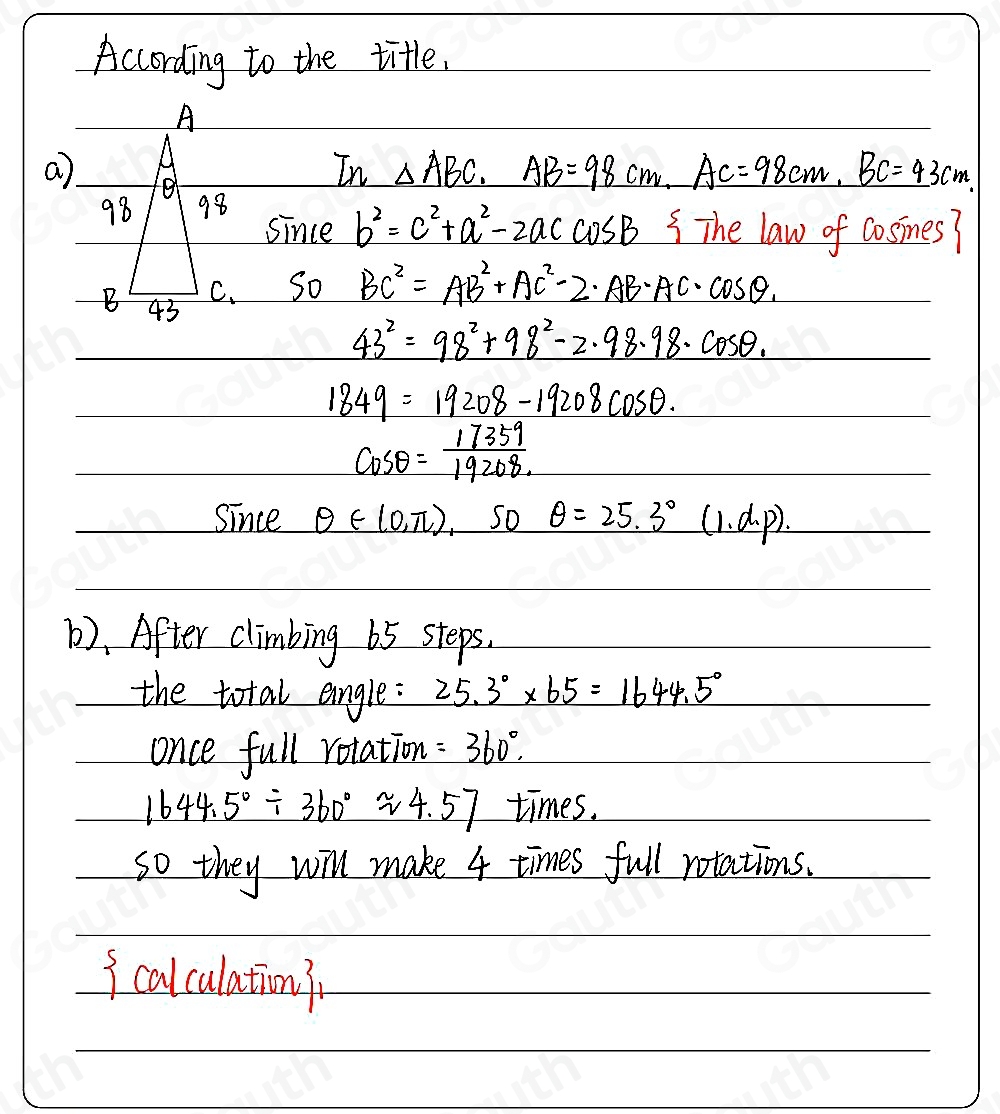 According to the title.
A
a)
θ
98
98
B
43
C.
In △ABC. AB=98 cm. AC=98cm. BC=93cm.
Since b²=c²+a²-2ac cosB {The law of cosines}
So BC²=AB²+AC²-2·AB·AC·cosθ.
43²=98²+98²-2·98·98·cosθ.
1849=19208-19208cosθ.
cosθ=17359/19208.
Since θ∈(0,π). So θ=25.3° (1.d.p).
b). After climbing 65 steps.
the total angle: 25.3°×65=1644.5°
once full rotation=360°.
1644.5°÷360°≈4.57 times.
so they will make 4 times full rotations.
{calculation}.
Gauth